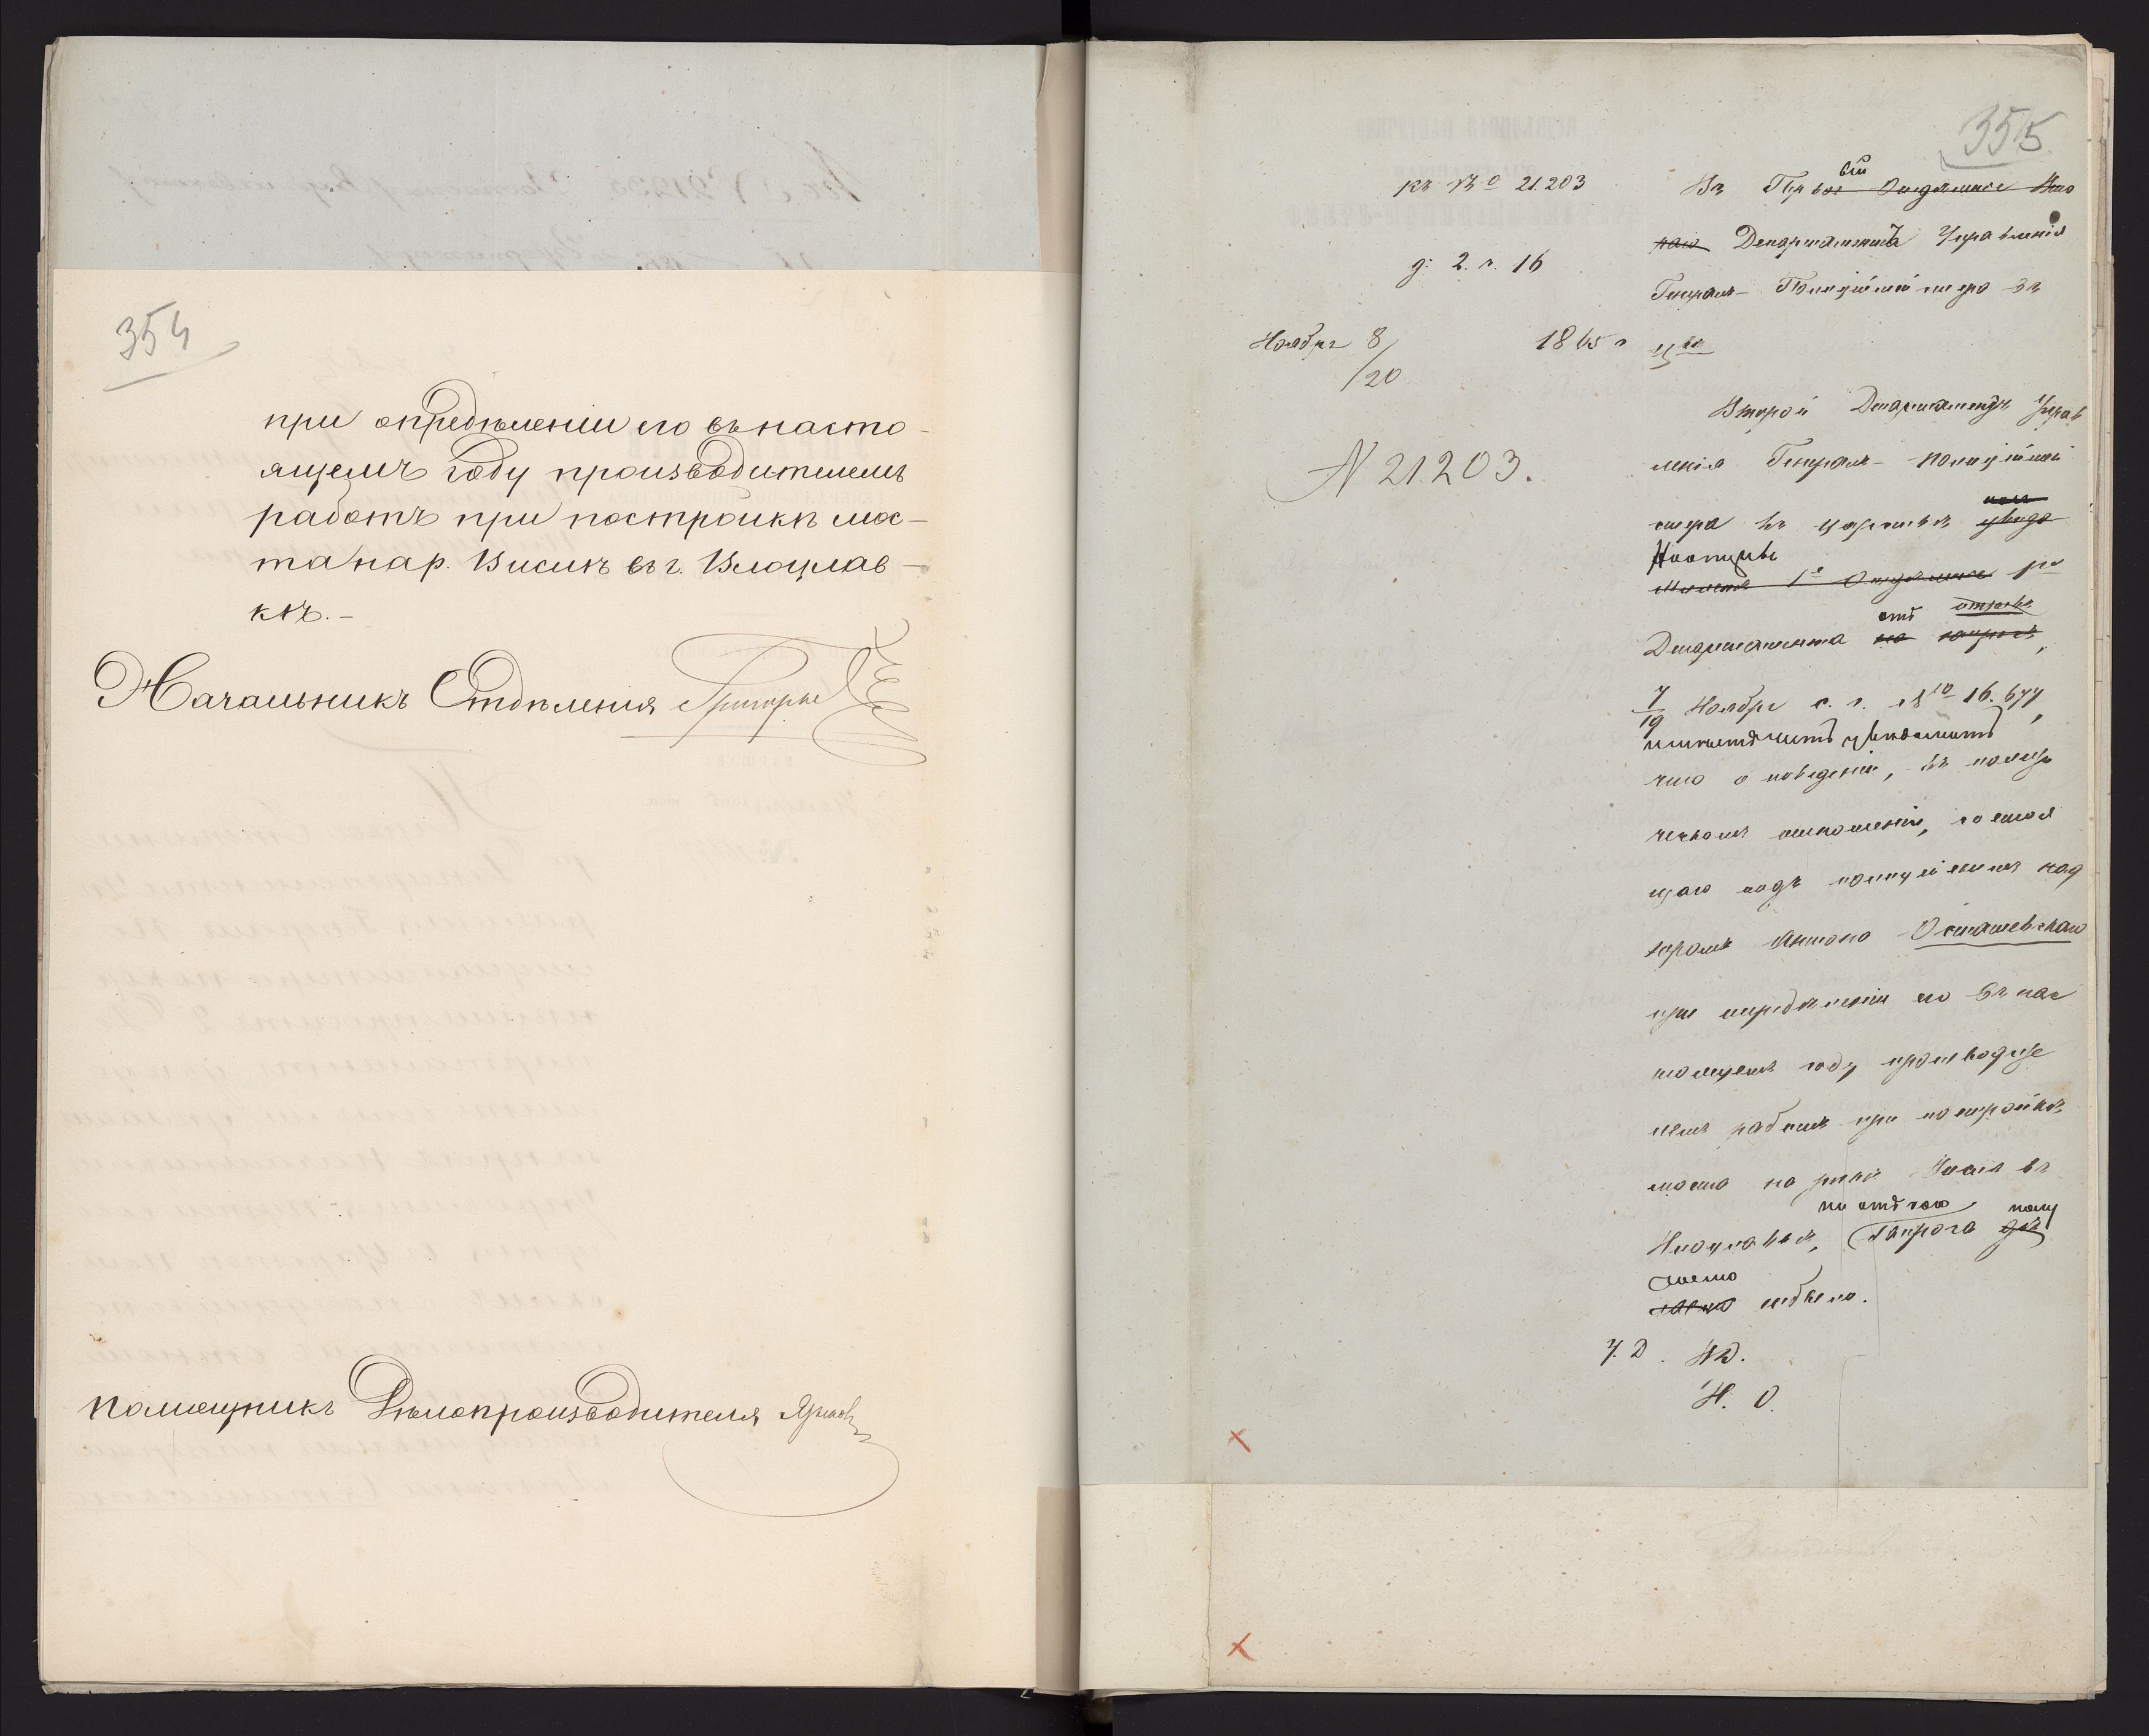 354
при опредѣленіи его въ насто-
ящемъ году производителемъ
работъ при постройкѣ мос-
та на р. Вислѣ въ г. Влоцлав-
кѣ.-
Начальникъ Отдѣленія
Помощникъ Дѣлопроизводителя
355
къ № 21.203
д: 2. г. 16
Ноября 8/20 1865 г
N 21.203.
Въ Первое Отдѣленіе Вто
раго Департамента Управленія
Генералъ-Полиціймейстера въ
Второй Департаментъ Управ
ленія Генералъ-Полиціймей
стера въ Царствѣ увѣдо
1е Отдѣленіе
Департамента на запросъ, отъ
7/19 Ноября с. г. № 16.677,
что о поведеніи, въ полити
ческомъ отношеніи, состоя
щаго подъ полицейскимъ над
зоромъ Антона Осташевскаго
при опредѣленіи его въ нас
тоящемъ году производите
лемъ работъ при постройкѣ
моста на рѣкѣ Вислѣ въ
Влоцлавкѣ, запроса
не было.
У. Д.
Н. О.